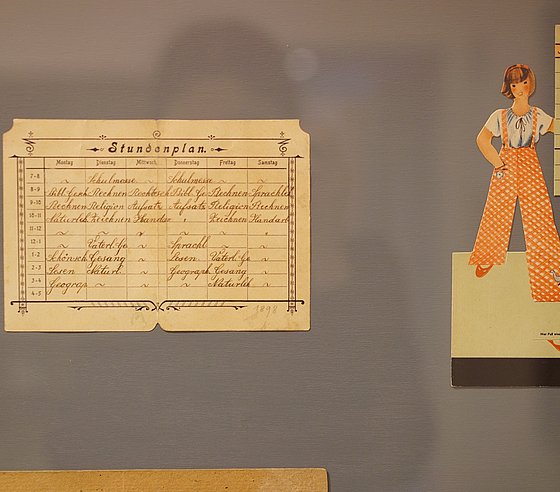 Stundenplan.
Montag Dienstag Mittwoch Donnerstag Freitag Samstag
7-8 " Schulmesse " Schulmesse " "
8-9 Bibl. Gesch Rechnen Rechtsch Bibl. Ge Rechnen Sprachleh
9-10 Rechnen Religion Aufsatz Aufsatz Religion Rechnen
10-11 Naturleh Zeichnen Handar " Zeichnen Handarb
11-12 " " " " "
12-1 " Vaterl. Ge " Sprachl " "
1-2 Schönsch Gesang " Lesen Vaterl. Ge "
2-3 Lesen Naturl " Geograph Gesang "
3-4 Geograp " " " Naturleh "
4-5
1898